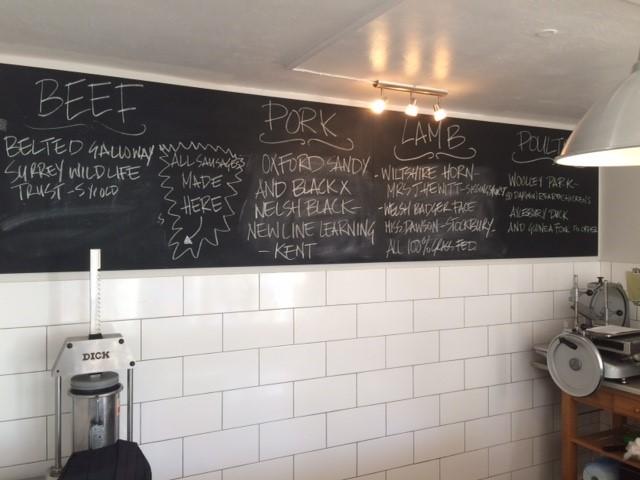 BEEF
BELTED GALLOWAY
SURREY WILDLIFE
TRUST - 5YR OLD
ALL SAUSAGES
MADE
HERE
PORK
OXFORD SANDY
AND BLACK X
WELSH BLACK-
NEWLINE LEARNING
- KENT
LAMB
- WILTSHIRE HORN-
MRS T HEWITT -
- WELSH BADGER FACE
MISS DAWSON - STOCKBURY-
ALL 100% GRASS FED
POULT
WOOLEY PARK-
CHICKENS
AYLESBURY DUCK
AND GUINEA FOWL TO ORDER
DICK